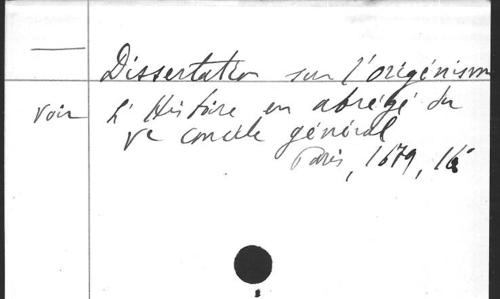 Dissertation sur l'origénism
voir L'Histoire en abrégé du
Ve concile général
Paris, 1679, 16°